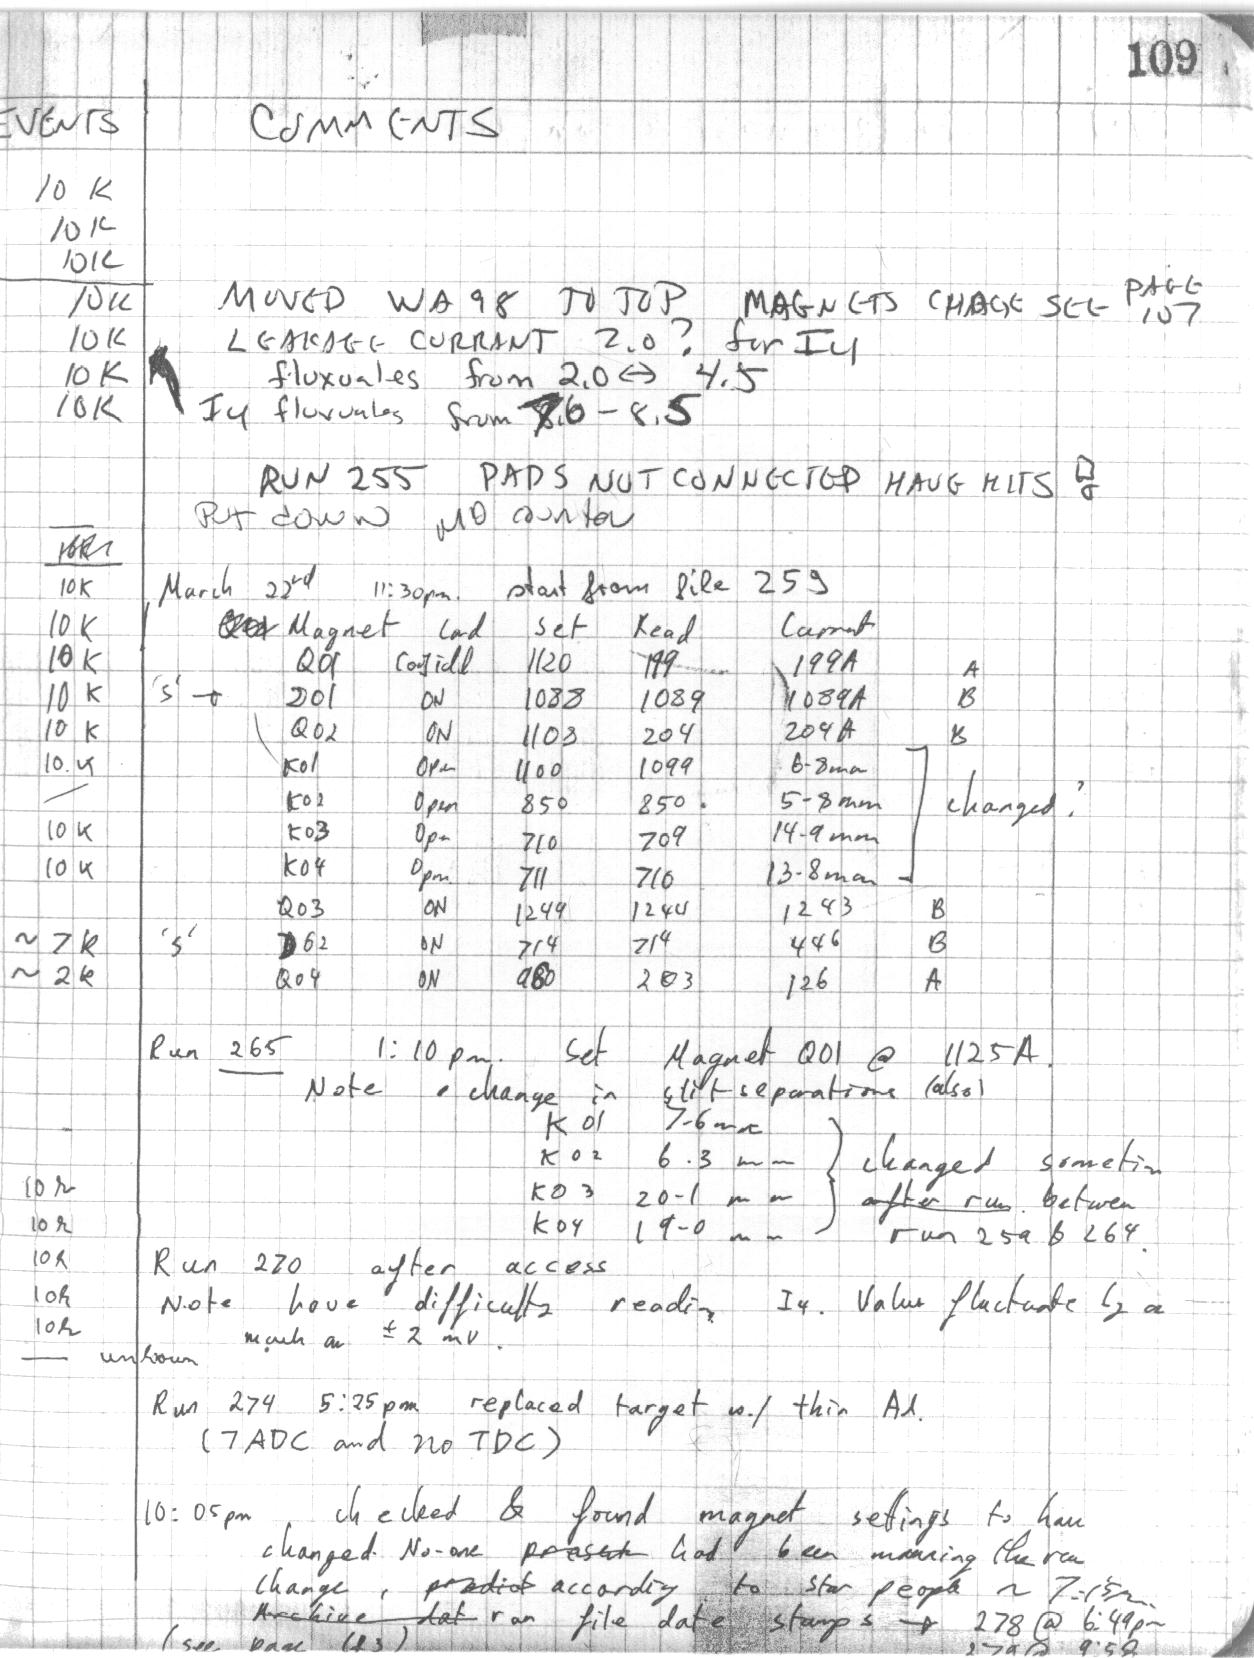 109
EVENTS COMMENTS
10 K
10K
10K
10K MOVED WA98 TO TOP MAGNETS CHAGE SEE PAGE 107
10K LEAKAGE CURRANT 2.0? for I4
10K fluxuales from 2.0 ↔ 4.5
10K I4 fluxuales from 7.6 - 8.5
RUN 255 PADS NOT CONNECTED HAVE HITS
PUT down counter
10K
10K March 22nd 11:30pm. start from file 259
10 K Magnet Cmd Set Read Current
10 K Q01 1120 199 199A A
10 K 'S' → D01 ON 1088 1089 1089A B
10 K Q02 ON 1103 204 204A B
10.K K01 Open 1100 1099 6-8mm
— K02 Open 850 850. 5-8mm changed?
10 K K03 Opn 710 709 14-9mm
10 K K04 Opn. 711 710 13-8mm
Q03 ON 1244 1244 1243 B
~ 7K 'S' D02 ON 714 714 446 B
~ 2K Q04 ON 980 203 126 A
Run 265 1:10 pm. Set Magnet Q01 @ 1125A.
Note change in slit separations (also)
K01 7-6mm
K02 6.3 mm changed sometim
10K K03 20-1 mm after run. between
10K K04 19-0 mm run 259 & 264.
10K Run 270 after access
10K Note have difficulty reading I4. Value fluctuate by a
10K much as ± 2 mV.
— unknown
Run 274 5:25pm replaced target w./ thin Al.
(7 ADC and no TDC)
10:05pm, checked & found magnet settings to have
changed. No-one present had been the
change, predict according to star people ~ 7-15pm.
Archive dat run file date stamps → 278 @ 6:49pm
(see page 279 @ 9:58